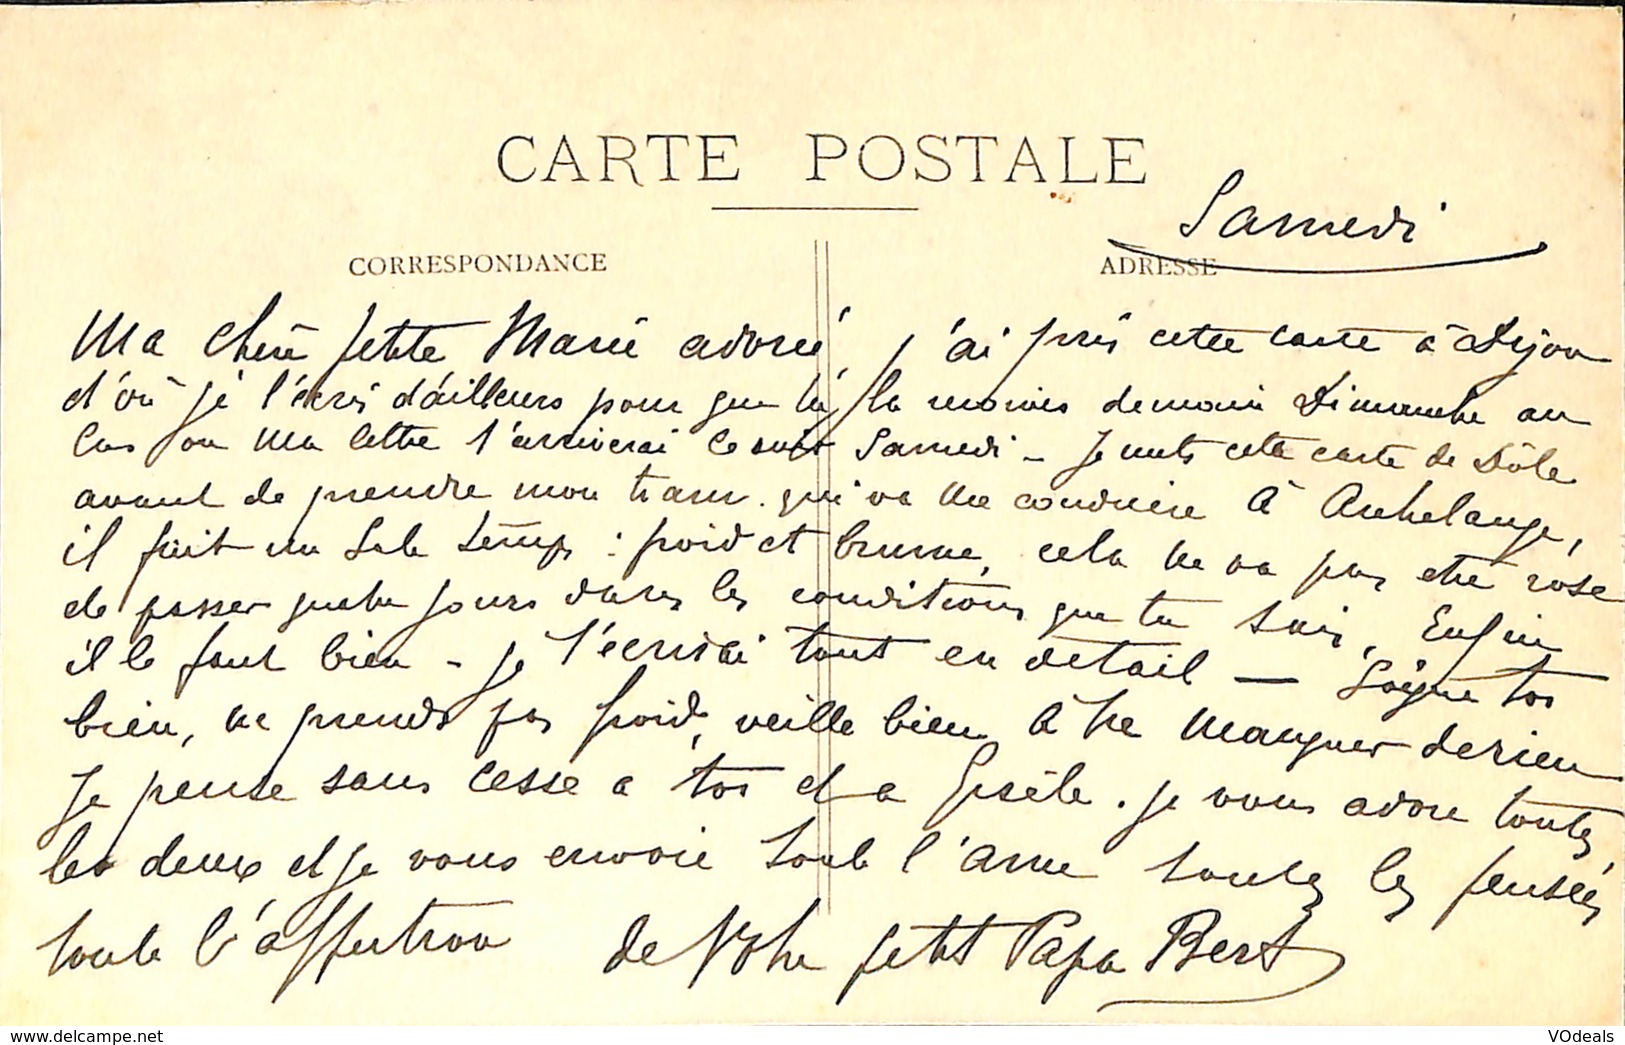 CARTE POSTALE
Samedi
CORRESPONDANCE
ADRESSE
Ma chère petite Marie adorée j'ai pris cette carte à Dijon
d'où je t'écris d'ailleurs pour que tu l'a moins demain Dimanche au
cas ou ma lettre t'arriverai ce soir Samedi - Je mets cette carte de Dôle
avant de prendre mon tram qui va me conduire à Archelange,
il fait un sale temps : froid et brume, cela ne va pas etre rose
de passer quatre jours dans les conditions que tu sais, Enfin
il le faut bien - je t'écrirai tout en detail — Soigne toi
bien, ne prends pas froid, veille bien à ne manquer de rien
Je pense sans cesse a toi et a Gisèle. je vous adore toutes
les deux et je vous envoie toute l'ame toutes les pensées
toute l'affection de Votre petit Papa Bert
VOdeals